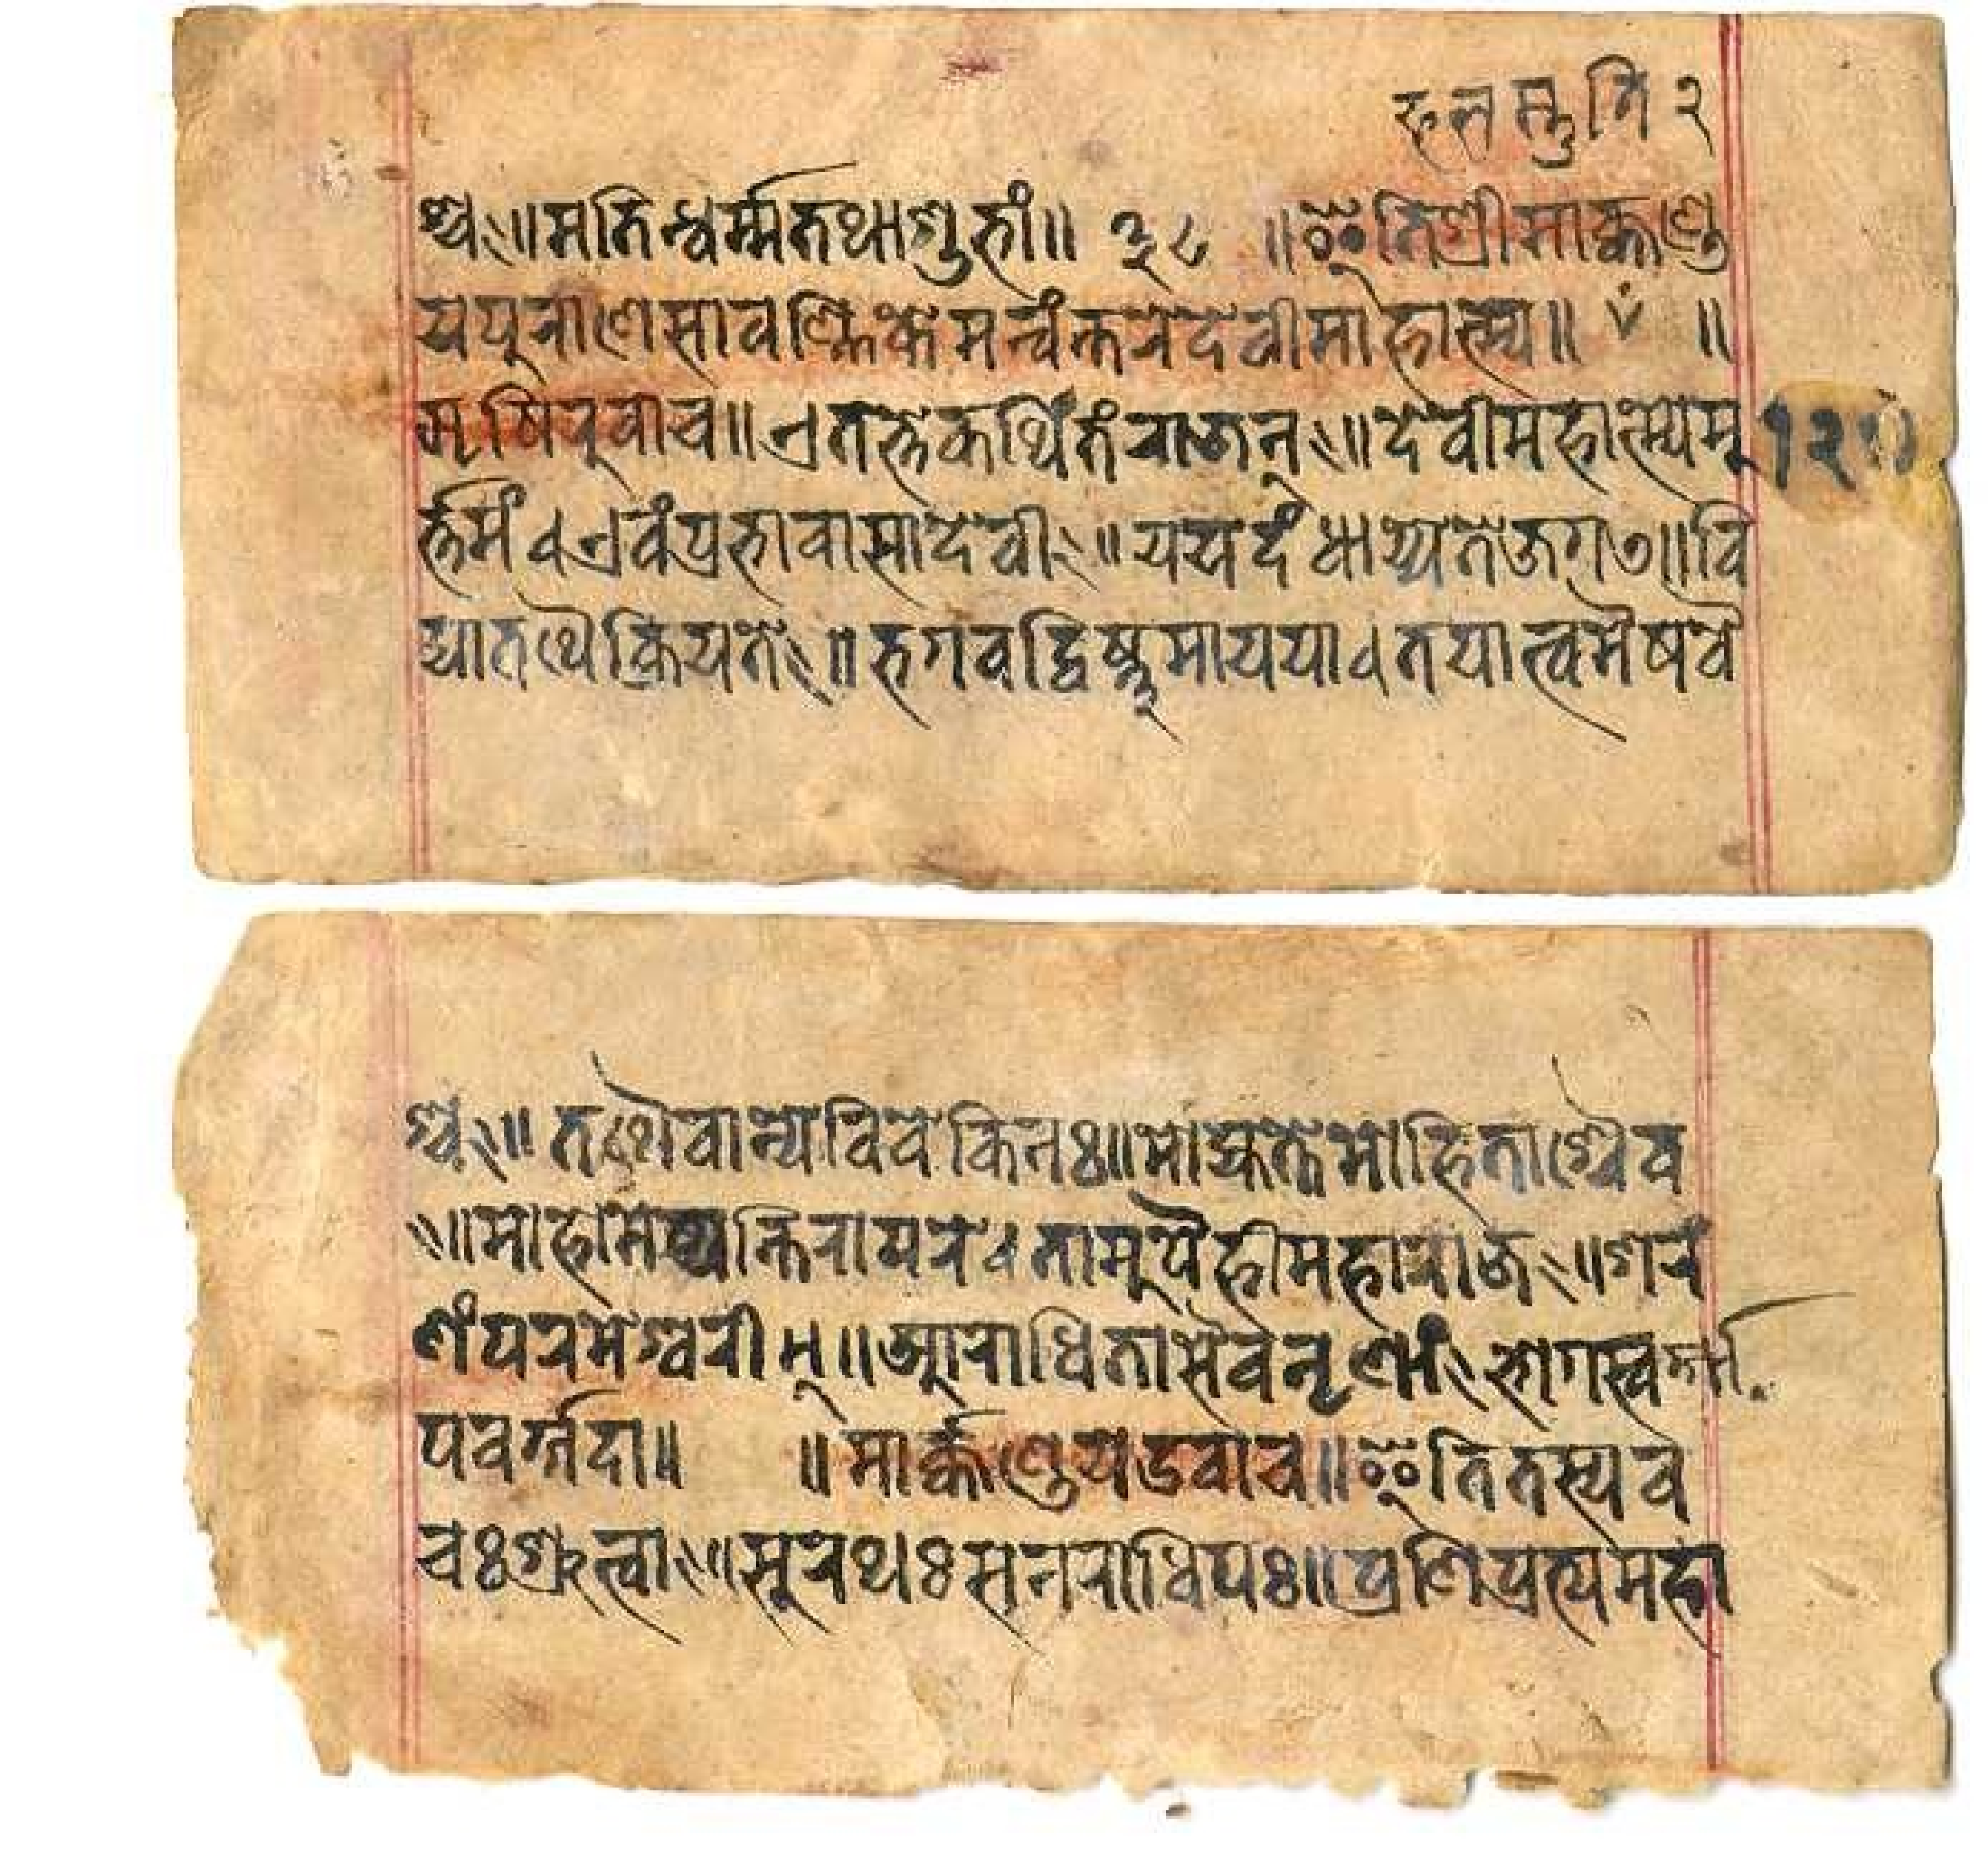 फलस्तुति २
श्च॰॥मतिन्धर्म्मेतथाशुभां॥ ३८ ॥इतिश्रीमार्कण्डे
ययपूराणेसावर्ण्णिकेमन्वंन्तरेदेवीमाहात्म्य॥ ॥
ऋषिरुवाच॥एतत्तेकथितंराजन्॥देवीमहात्म्यमू
र्त्तमं।एवंप्रभावासादेवी॥ययेदंधाय्यतेजगत्॥वि
द्यातथैक्रियते॥भगवद्विष्णूमायया।तयात्वमेषवै
श्च॥तथैवान्यविवेकिनः॥मोह्यन्तेमोहिताश्चैव
॥मोहमेष्यन्तिरापरे।तामूपैहीमहाराज॥शर
णंपरमेश्वरीम्॥आराधितासैवनृणां।भोगस्वर्गा
पवर्ग्गदा॥ ॥मार्कण्डेयउवाच॥इतितस्यव
चःश्रुत्वा॥सूरथःसनराधिपः॥प्रणिपत्यमहा